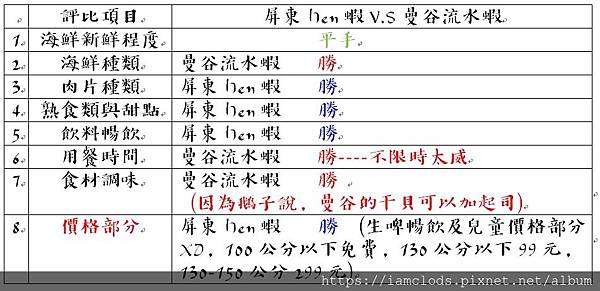 評比項目 屏東 hen 蝦 V.S 曼谷流水蝦
1. 海鮮新鮮程度 平手
2. 海鮮種類 曼谷流水蝦 勝
3. 肉片種類 屏東 hen 蝦 勝
4. 熟食類與甜點 屏東 hen 蝦 勝
5. 飲料暢飲 屏東 hen 蝦 勝
6. 用餐時間 曼谷流水蝦 勝----不限時太威
7. 食材調味 曼谷流水蝦 勝
(因為鵝子說，曼谷的干貝可以加起司)
8. 價格部分 屏東 hen 蝦 勝 (生啤暢飲及兒童價格部分
XD，100 公分以下免費，130 公分以下 99 元，
130-150 公分 299 元)
https://iamclods.pixnet.net/album